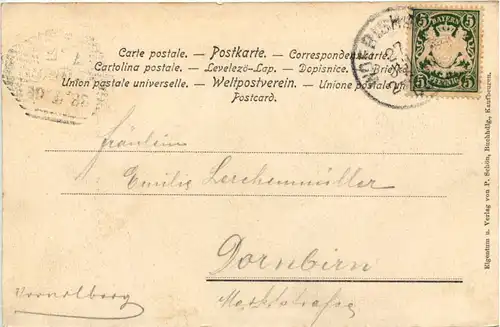 Carte postale. — Postkarte. — Correspondenskarte.
Cartolina postale. — Levelező-Lap. — Dopisnice. —
Union postale universelle. — Weltpostverein. — Unione postale
Postcard.
5 BAYERN 5
5 PFENNIG 5
Fräulein
Emilie Lerchenmüller
Dornbirn
Marktstrasse
Vorarlberg
Eigentum u. Verlag von P. Schön, Buchhdlg., Kaufbeuren.